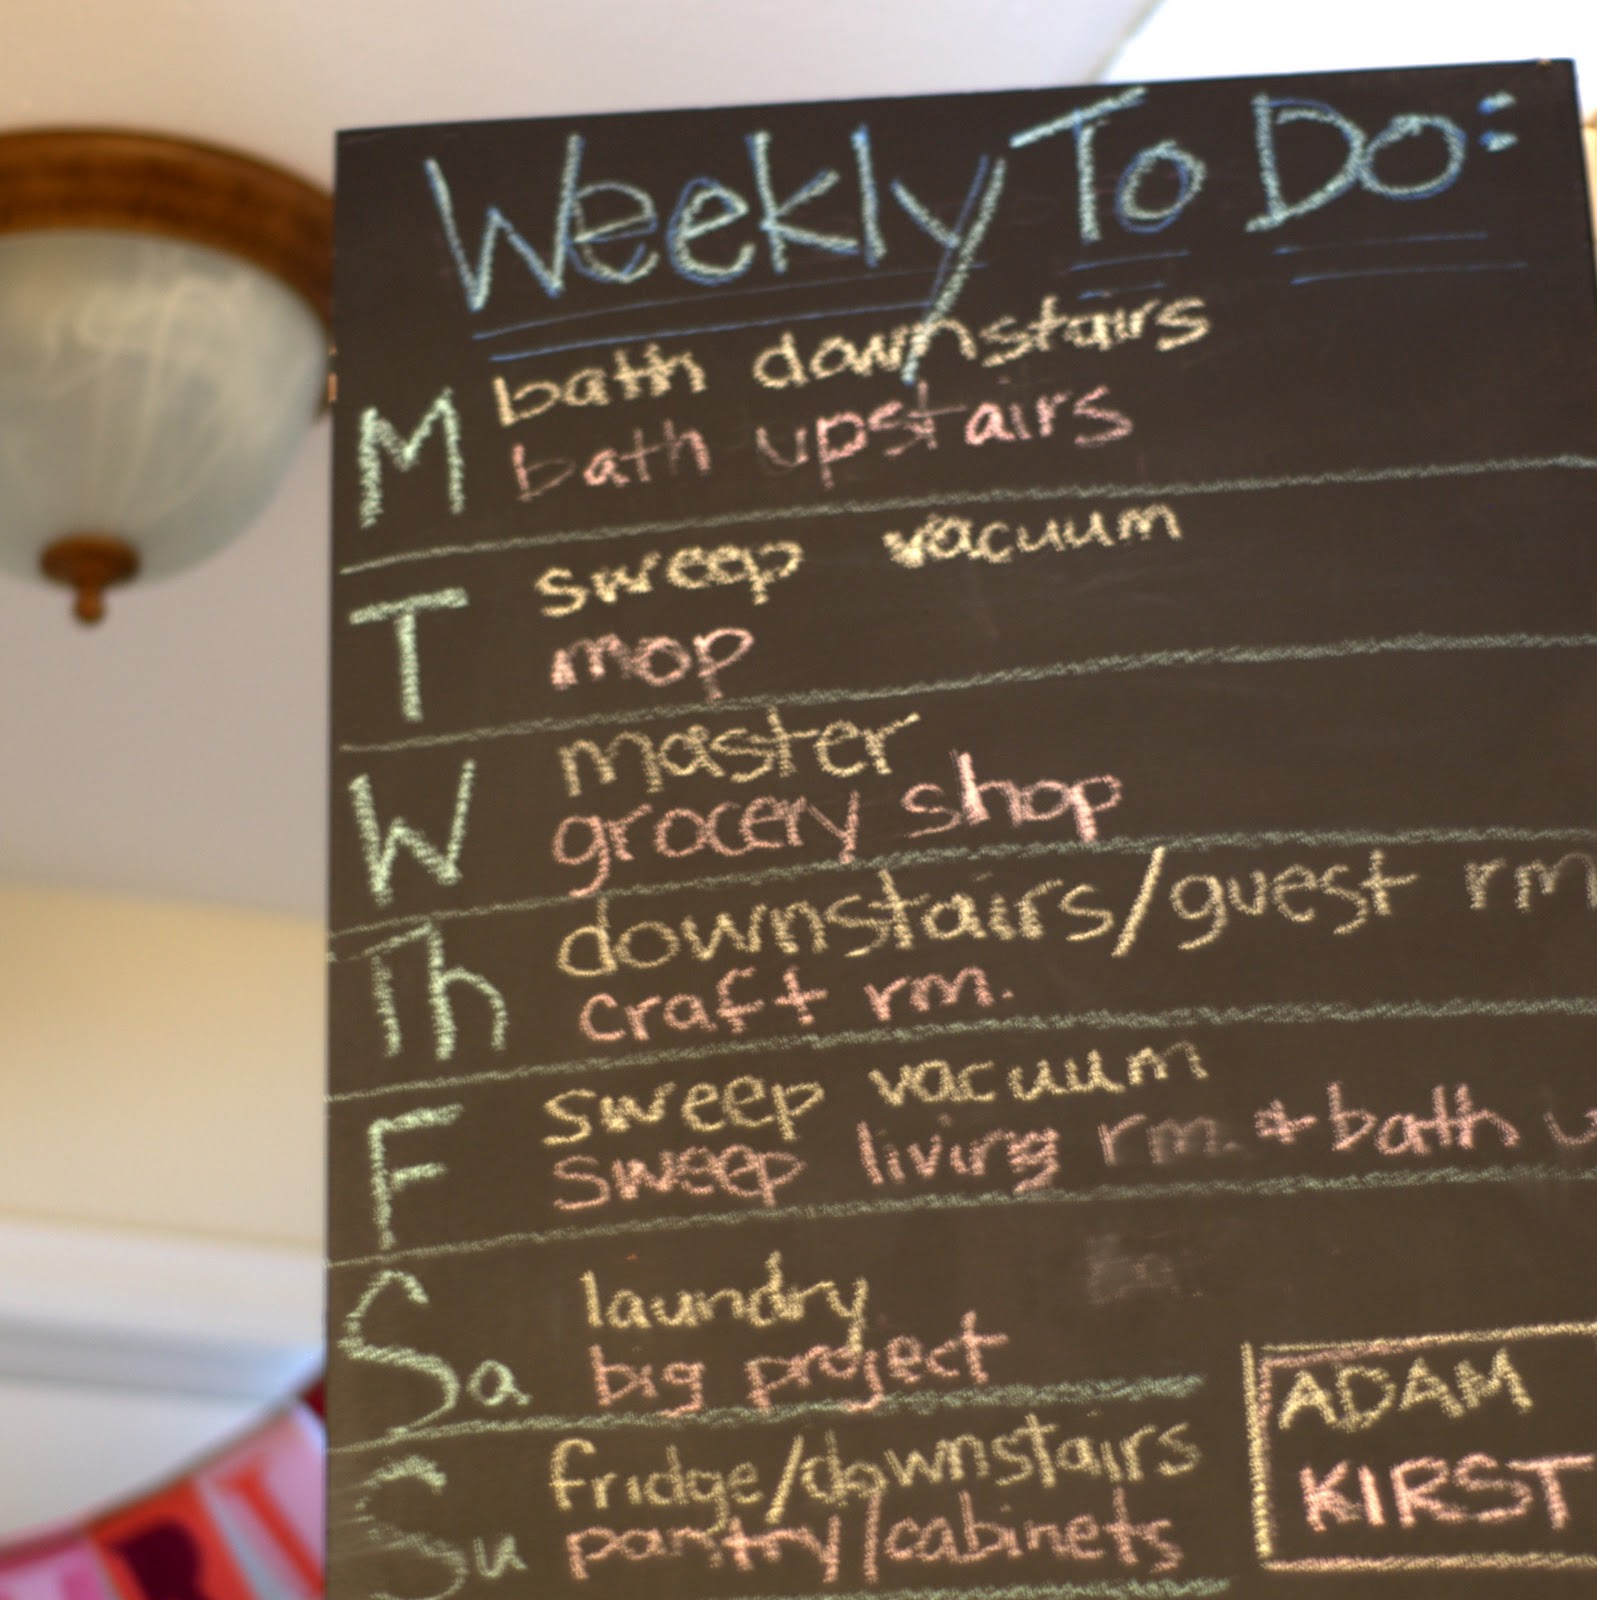 Weekly To Do:
M bath downstairs
bath upstairs
T sweep vacuum
mop
W master
grocery shop
Th downstairs/guest rm
craft rm.
F sweep vacuum
sweep living rm. + bath u
Sa laundry
big project
Su fridge/downstairs
pantry/cabinets
ADAM
KIRST